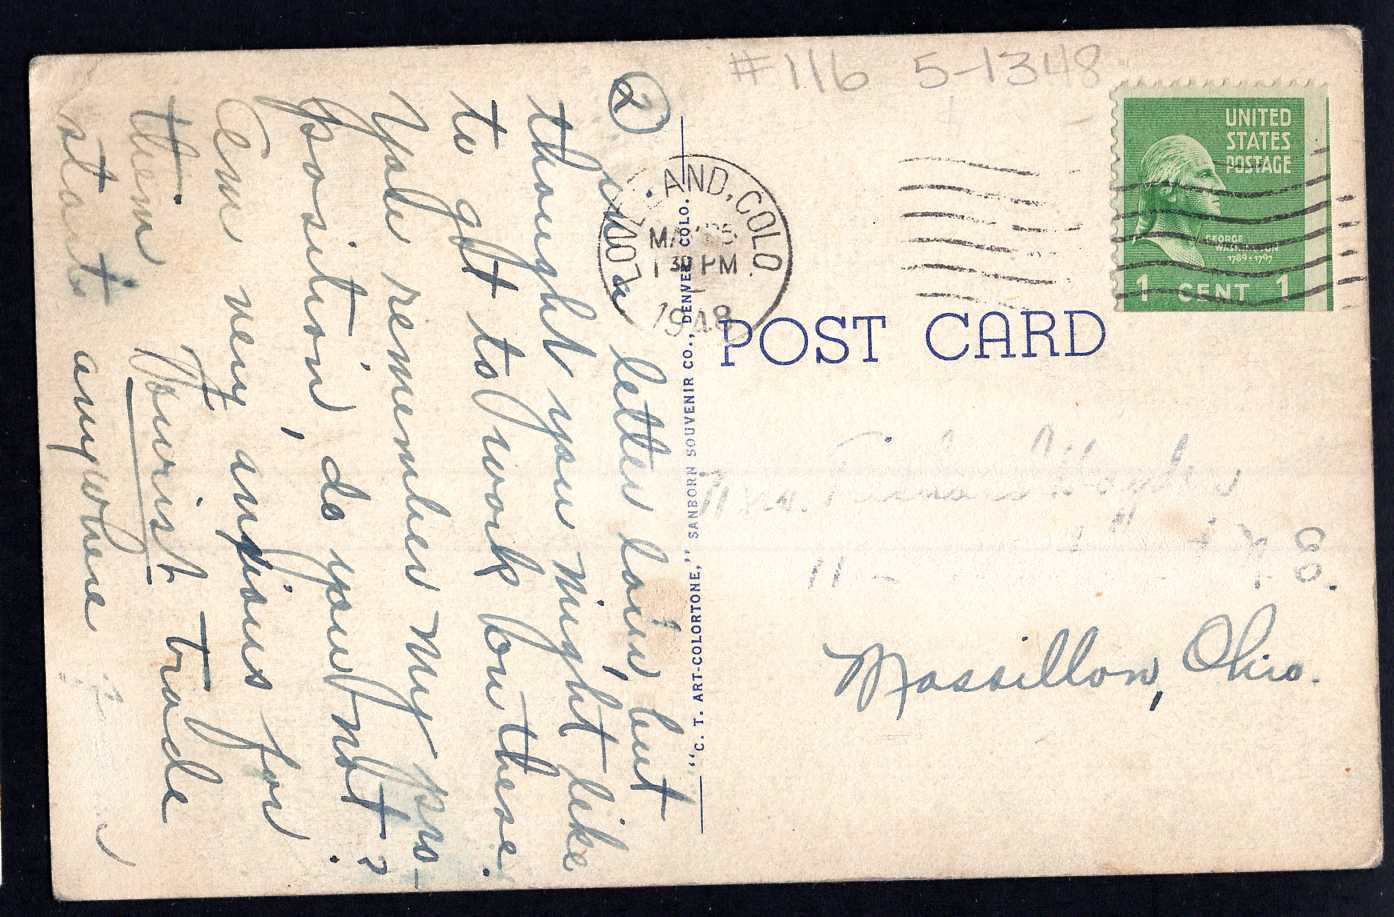 #116 5-1348
UNITED
STATES
POSTAGE
GEORGE
WASHINGTON
1789-1797
1 CENT 1
LOVELAND, COLO.
MAY 25
1 30 PM
1948
POST CARD
"C. T. ART-COLORTONE," SANBORN SOUVENIR CO., DENVER, COLO.
②
in a letter later, but
thought you might like
to get to work on these.
You remember my pro-
position, do you not?
I'm very anxious for
them Tourist trade
starts anywhere
Mrs.
Co.
Massillon, Ohio.